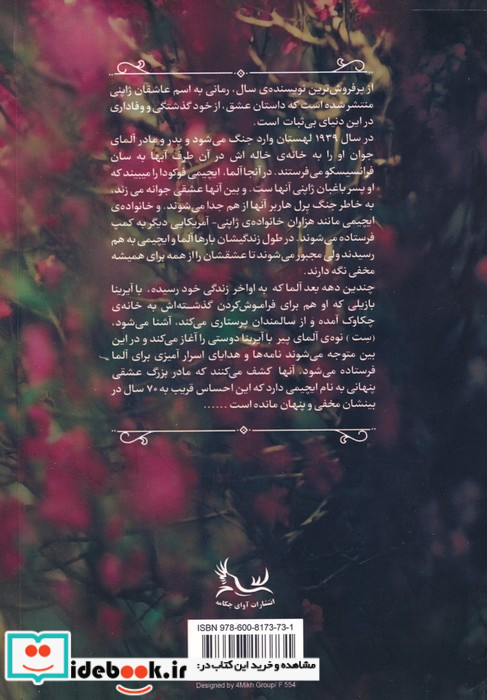 از پرفروش‌ترین نویسنده‌ی سال، رمانی به اسم عاشقان ژاپنی
منتشر شده است که داستان عشق، از خود گذشتگی و وفاداری
در این دنیای بی‌ثبات است.
در سال ۱۹۳۹ لهستان وارد جنگ می‌شود و پدر و مادر آلمای
جوان او را به خانه‌ی خاله اش در آن طرف آبها به سان
فرانسیسکو می‌فرستند. در آنجا آلما، ایچیمی فوکودا را میبیند که
او پسر باغبان ژاپنی آنها ست. و بین آنها عشقی جوانه می زند،
به خاطر جنگ پرل هاربر آنها از هم جدا می‌شوند. و خانواده‌ی
ایچیمی مانند هزاران خانواده‌ی ژاپنی- آمریکایی دیگر به کمپ
فرستاده می‌شوند. در طول زندگیشان بارها آلما و ایچیمی به هم
رسیدند ولی مجبور می‌شوند تا عشقشان را از همه برای همیشه
مخفی نگه دارند.
چندین دهه بعد آلما که به اواخر زندگی خود رسیده، با آیرینا
بازیلی که او هم برای فراموش‌کردن گذشته‌اش به خانه‌ی
چکاوک آمده و از سالمندان پرستاری می‌کند، آشنا می‌شود.
(ست) نوه‌ی آلمای پیر با آیرینا دوستی را آغاز می‌کند و در این
بین متوجه می‌شوند نامه‌ها و هدایای اسرار آمیزی برای آلما
فرستاده می‌شود. آنها کشف می‌کنند که مادر بزرگ عشقی
پنهانی به نام ایچیمی دارد که این احساس قریب به ۷۰ سال در
بینشان مخفی و پنهان مانده است ......
انتشارات آوای چکامه
ISBN 978-600-8173-73-1
مشاهده و خرید این کتاب در:
idebook.ir
Designed by 4Mikh Group/ F 554